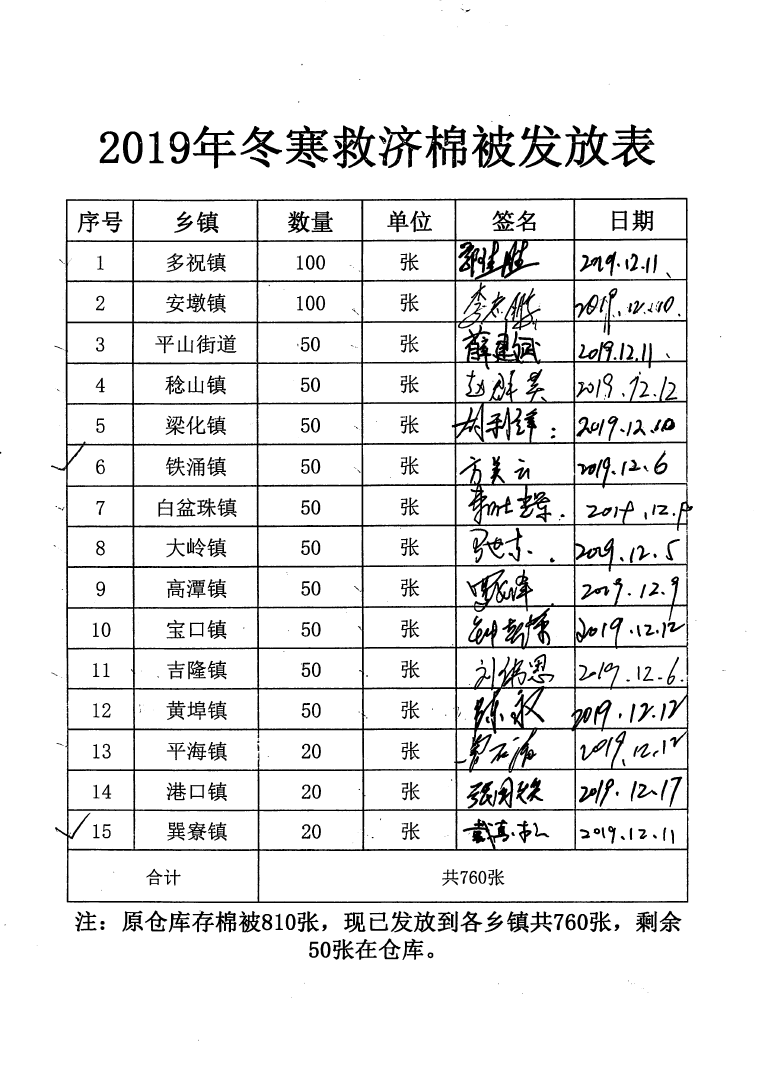 2019年冬寒救济棉被发放表
序号 乡镇 数量 单位 签名 日期
1 多祝镇 100 张 2019.12.11
2 安墩镇 100 张 2019.12.10
3 平山街道 50 张 2019.12.11
4 稔山镇 50 张 2019.12.12
5 梁化镇 50 张 2019.12.10
6 铁涌镇 50 张 方美云 2019.12.6
7 白盆珠镇 50 张
8 大岭镇 50 张 2019.12.5
9 高潭镇 50 张 2019.12.9
10 宝口镇 50 张 2019.12.12
11 吉隆镇 50 张 刘伟恩 2019.12.6
12 黄埠镇 50 张 陈永权 2019.12.12
13 平海镇 20 张 2019.12.12
14 港口镇 20 张 2019.12.17
15 巽寮镇 20 张 2019.12.11
合计 共760张
注：原仓库存棉被810张，现已发放到各乡镇共760张，剩余
50张在仓库。